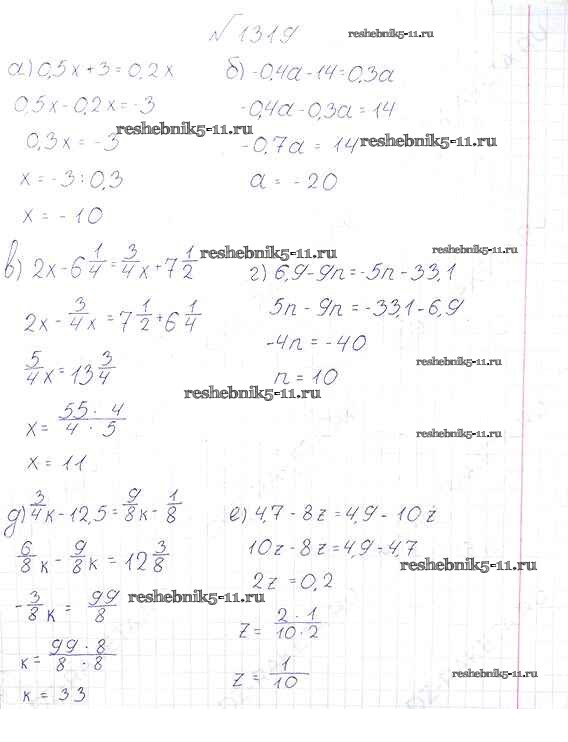 №1319
а) 0,5x + 3 = 0,2x
0,5x - 0,2x = -3
0,3x = -3
x = -3 : 0,3
x = -10
б) -0,4a - 14 = 0,3a
-0,4a - 0,3a = 14
-0,7a = 14
a = -20
в) 2x - 6 1/4 = 3/4 x + 7 1/2
2x - 3/4 x = 7 1/2 + 6 1/4
5/4 x = 13 3/4
x = 55 · 4 / 4 · 5
x = 11
г) 6,9 - 9n = -5n - 33,1
5n - 9n = -33,1 - 6,9
-4n = -40
n = 10
д) 3/4 к - 12,5 = 9/8 к - 1/8
6/8 к - 9/8 к = 12 3/8
-3/8 к = 99/8
к = 99 · 8 / 8 · 8
к = 33
е) 4,7 - 8z = 4,9 - 10z
10z - 8z = 4,9 - 4,7
2z = 0,2
z = 2 · 1 / 10 · 2
z = 1/10
reshebnik5-11.ru
reshebnik5-11.ru
reshebnik5-11.ru
reshebnik5-11.ru
reshebnik5-11.ru
reshebnik5-11.ru
reshebnik5-11.ru
reshebnik5-11.ru
reshebnik5-11.ru
reshebnik5-11.ru
reshebnik5-11.ru